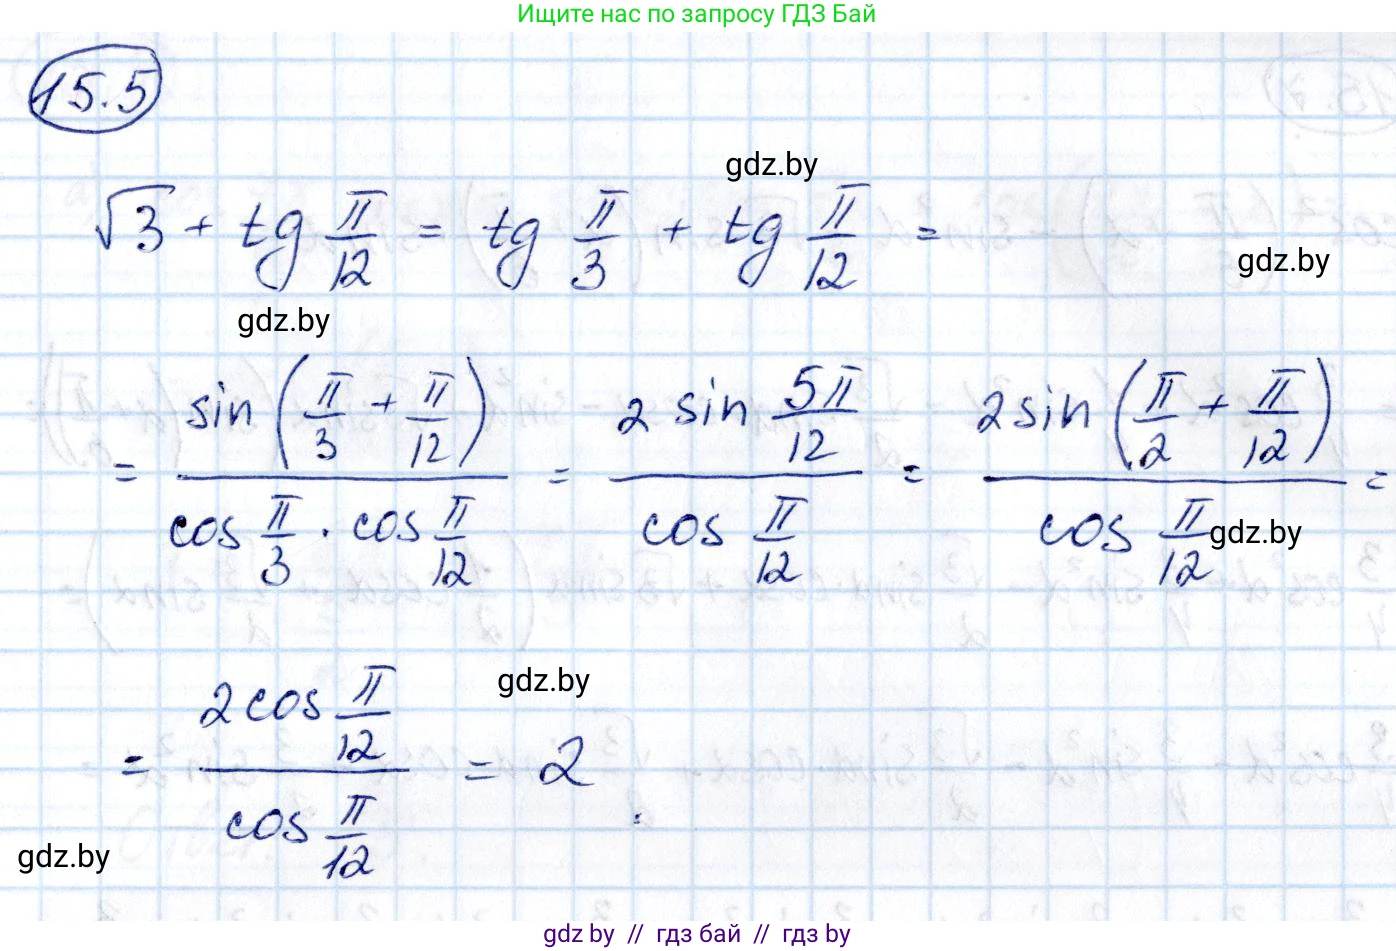 Ищите нас по запросу ГДЗ Бай
15.5
gdz.by
√3 + tg π/12 = tg π/3 + tg π/12 =
gdz.by
gdz.by
= sin(π/3 + π/12) / (cos π/3 · cos π/12) = 2 sin 5π/12 / cos π/12 = 2 sin(π/2 + π/12) / cos π/12 =
gdz.by
gdz.by
= 2 cos π/12 / cos π/12 = 2
gdz.by
gdz by // гдз бай // гдз by